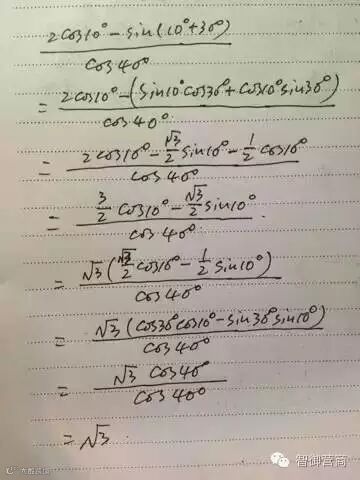 2cos10°-sin(10°+30°)
cos40°
= 2cos10°-(sin10°cos30°+cos10°sin30°)
cos40°
= 2cos10°-√3/2 sin10°-1/2 cos10°
cos40°
= 3/2 cos10°-√3/2 sin10°
cos40°
= √3(√3/2 cos10°-1/2 sin10°)
cos40°
= √3(cos30°cos10°-sin30°sin10°)
cos40°
= √3 cos40°
cos40°
= √3
智御营商